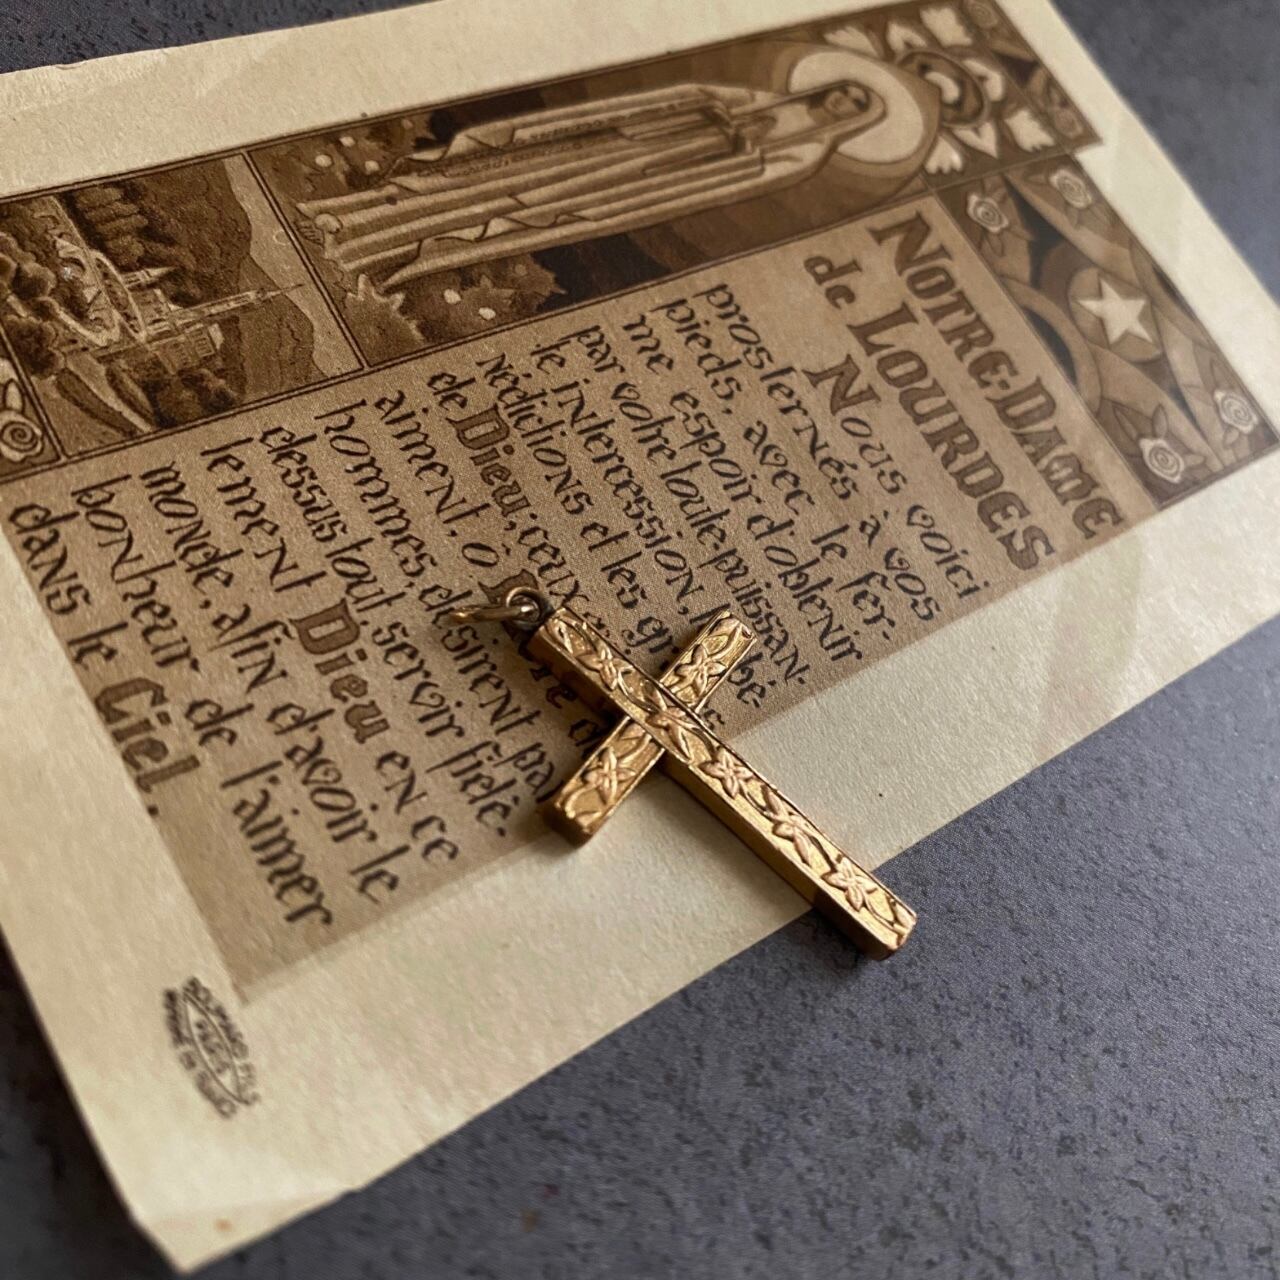 NOTRE-DAME
de LOURDES
Nous voici
prosternés à vos
pieds, avec le fer-
me espoir d'obtenir
par votre toute-puissan-
te intercession, bé-
nédictions et les
de Dieu; ceux
aiment, ô
hommes, désirent par
dessus tout, servir fidè-
lement Dieu en ce
monde, afin d'avoir le
bonheur de l'aimer
dans le Ciel.
PARIS